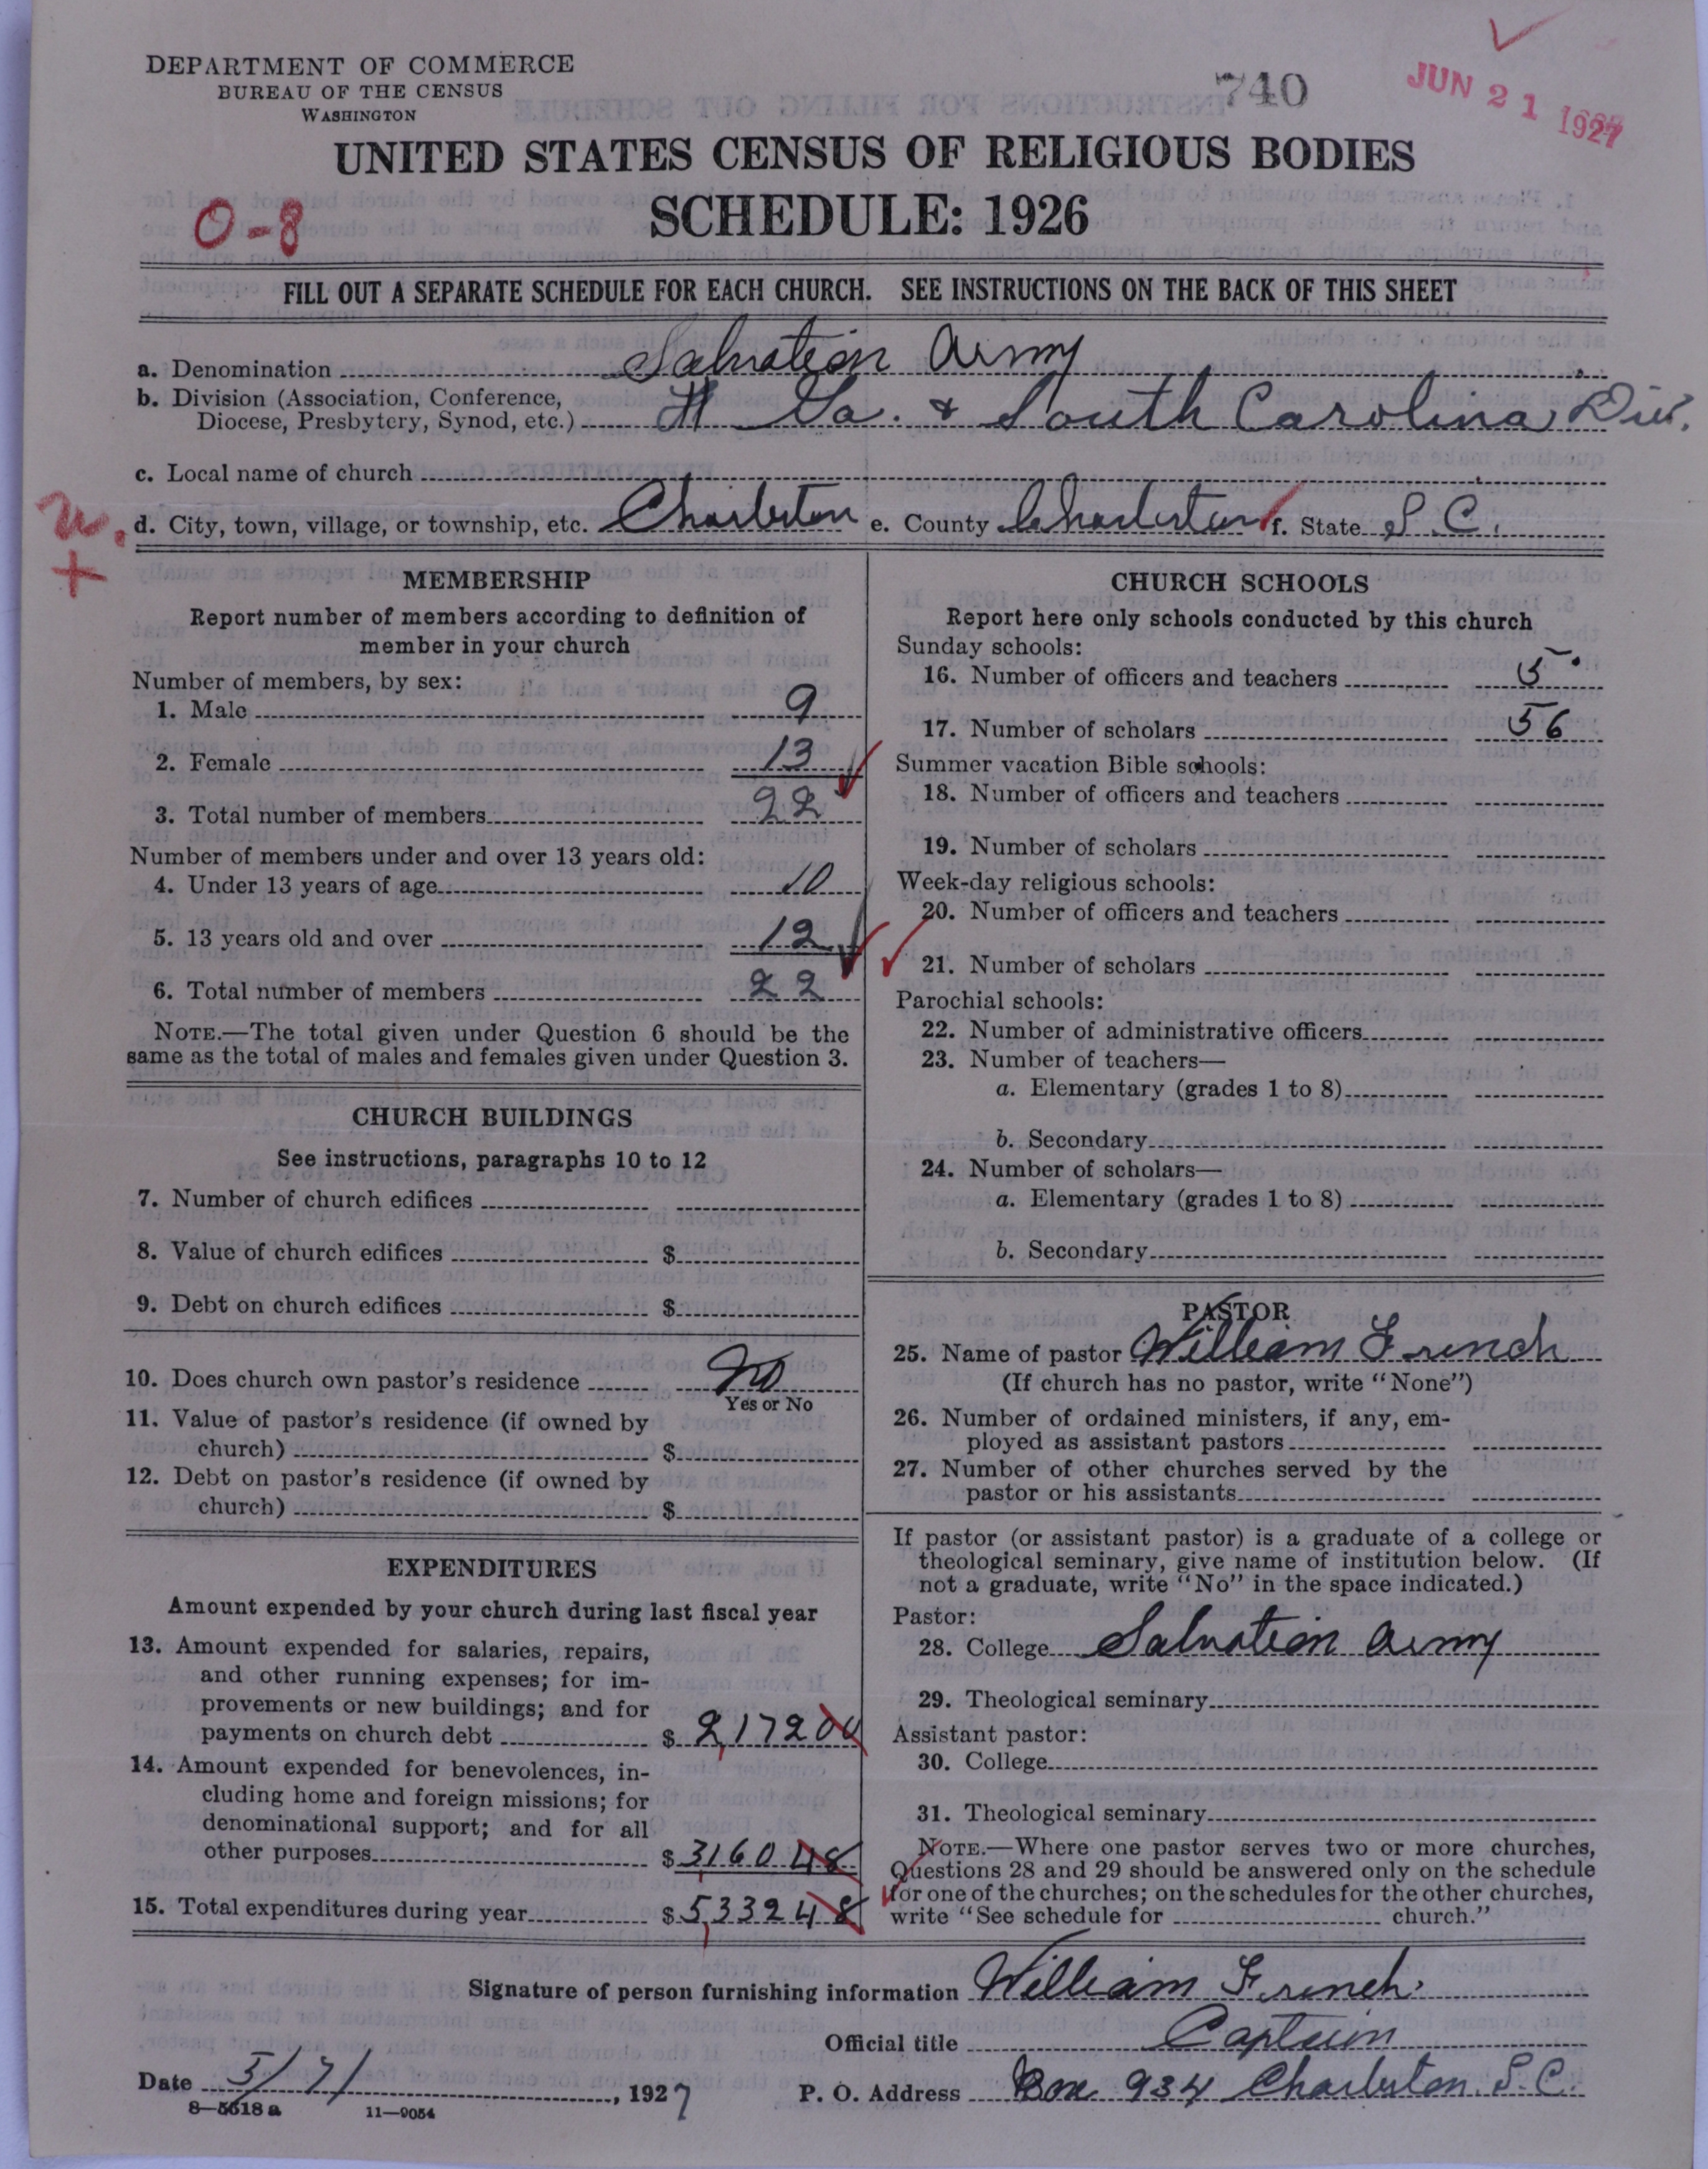 DEPARTMENT OF COMMERCE
BUREAU OF THE CENSUS
WASHINGTON
740
JUN 21 1927
UNITED STATES CENSUS OF RELIGIOUS BODIES
SCHEDULE: 1926
O-8
FILL OUT A SEPARATE SCHEDULE FOR EACH CHURCH. SEE INSTRUCTIONS ON THE BACK OF THIS SHEET
a. Denomination Salvation Army
b. Division (Association, Conference,
Diocese, Presbytery, Synod, etc.) Ga. & South Carolina Div.
c. Local name of church
d. City, town, village, or township, etc. Charleston e. County Charleston f. State S.C.
MEMBERSHIP
Report number of members according to definition of
member in your church
Number of members, by sex:
1. Male 9
2. Female 13
3. Total number of members 22
Number of members under and over 13 years old:
4. Under 13 years of age 10
5. 13 years old and over 12
6. Total number of members 22
NOTE.—The total given under Question 6 should be the
same as the total of males and females given under Question 3.
CHURCH BUILDINGS
See instructions, paragraphs 10 to 12
7. Number of church edifices
8. Value of church edifices $
9. Debt on church edifices $
10. Does church own pastor's residence No
Yes or No
11. Value of pastor's residence (if owned by
church) $
12. Debt on pastor's residence (if owned by
church) $
EXPENDITURES
Amount expended by your church during last fiscal year
13. Amount expended for salaries, repairs,
and other running expenses; for im-
provements or new buildings; and for
payments on church debt $ 2,172 00
14. Amount expended for benevolences, in-
cluding home and foreign missions; for
denominational support; and for all
other purposes $ 3160 48
15. Total expenditures during year $ 5,332 48
CHURCH SCHOOLS
Report here only schools conducted by this church
Sunday schools:
16. Number of officers and teachers 5
17. Number of scholars 56
Summer vacation Bible schools:
18. Number of officers and teachers
19. Number of scholars
Week-day religious schools:
20. Number of officers and teachers
21. Number of scholars
Parochial schools:
22. Number of administrative officers
23. Number of teachers—
a. Elementary (grades 1 to 8)
b. Secondary
24. Number of scholars—
a. Elementary (grades 1 to 8)
b. Secondary
PASTOR
25. Name of pastor William French
(If church has no pastor, write "None")
26. Number of ordained ministers, if any, em-
ployed as assistant pastors
27. Number of other churches served by the
pastor or his assistants
If pastor (or assistant pastor) is a graduate of a college or
theological seminary, give name of institution below. (If
not a graduate, write "No" in the space indicated.)
Pastor:
28. College Salvation Army
29. Theological seminary
Assistant pastor:
30. College
31. Theological seminary
NOTE.—Where one pastor serves two or more churches,
Questions 28 and 29 should be answered only on the schedule
for one of the churches; on the schedules for the other churches,
write "See schedule for church."
Signature of person furnishing information William French
Official title Captain
Date 5/7/, 1927 P. O. Address Box 934 Charleston. S.C.
8—5618 a 11—9054